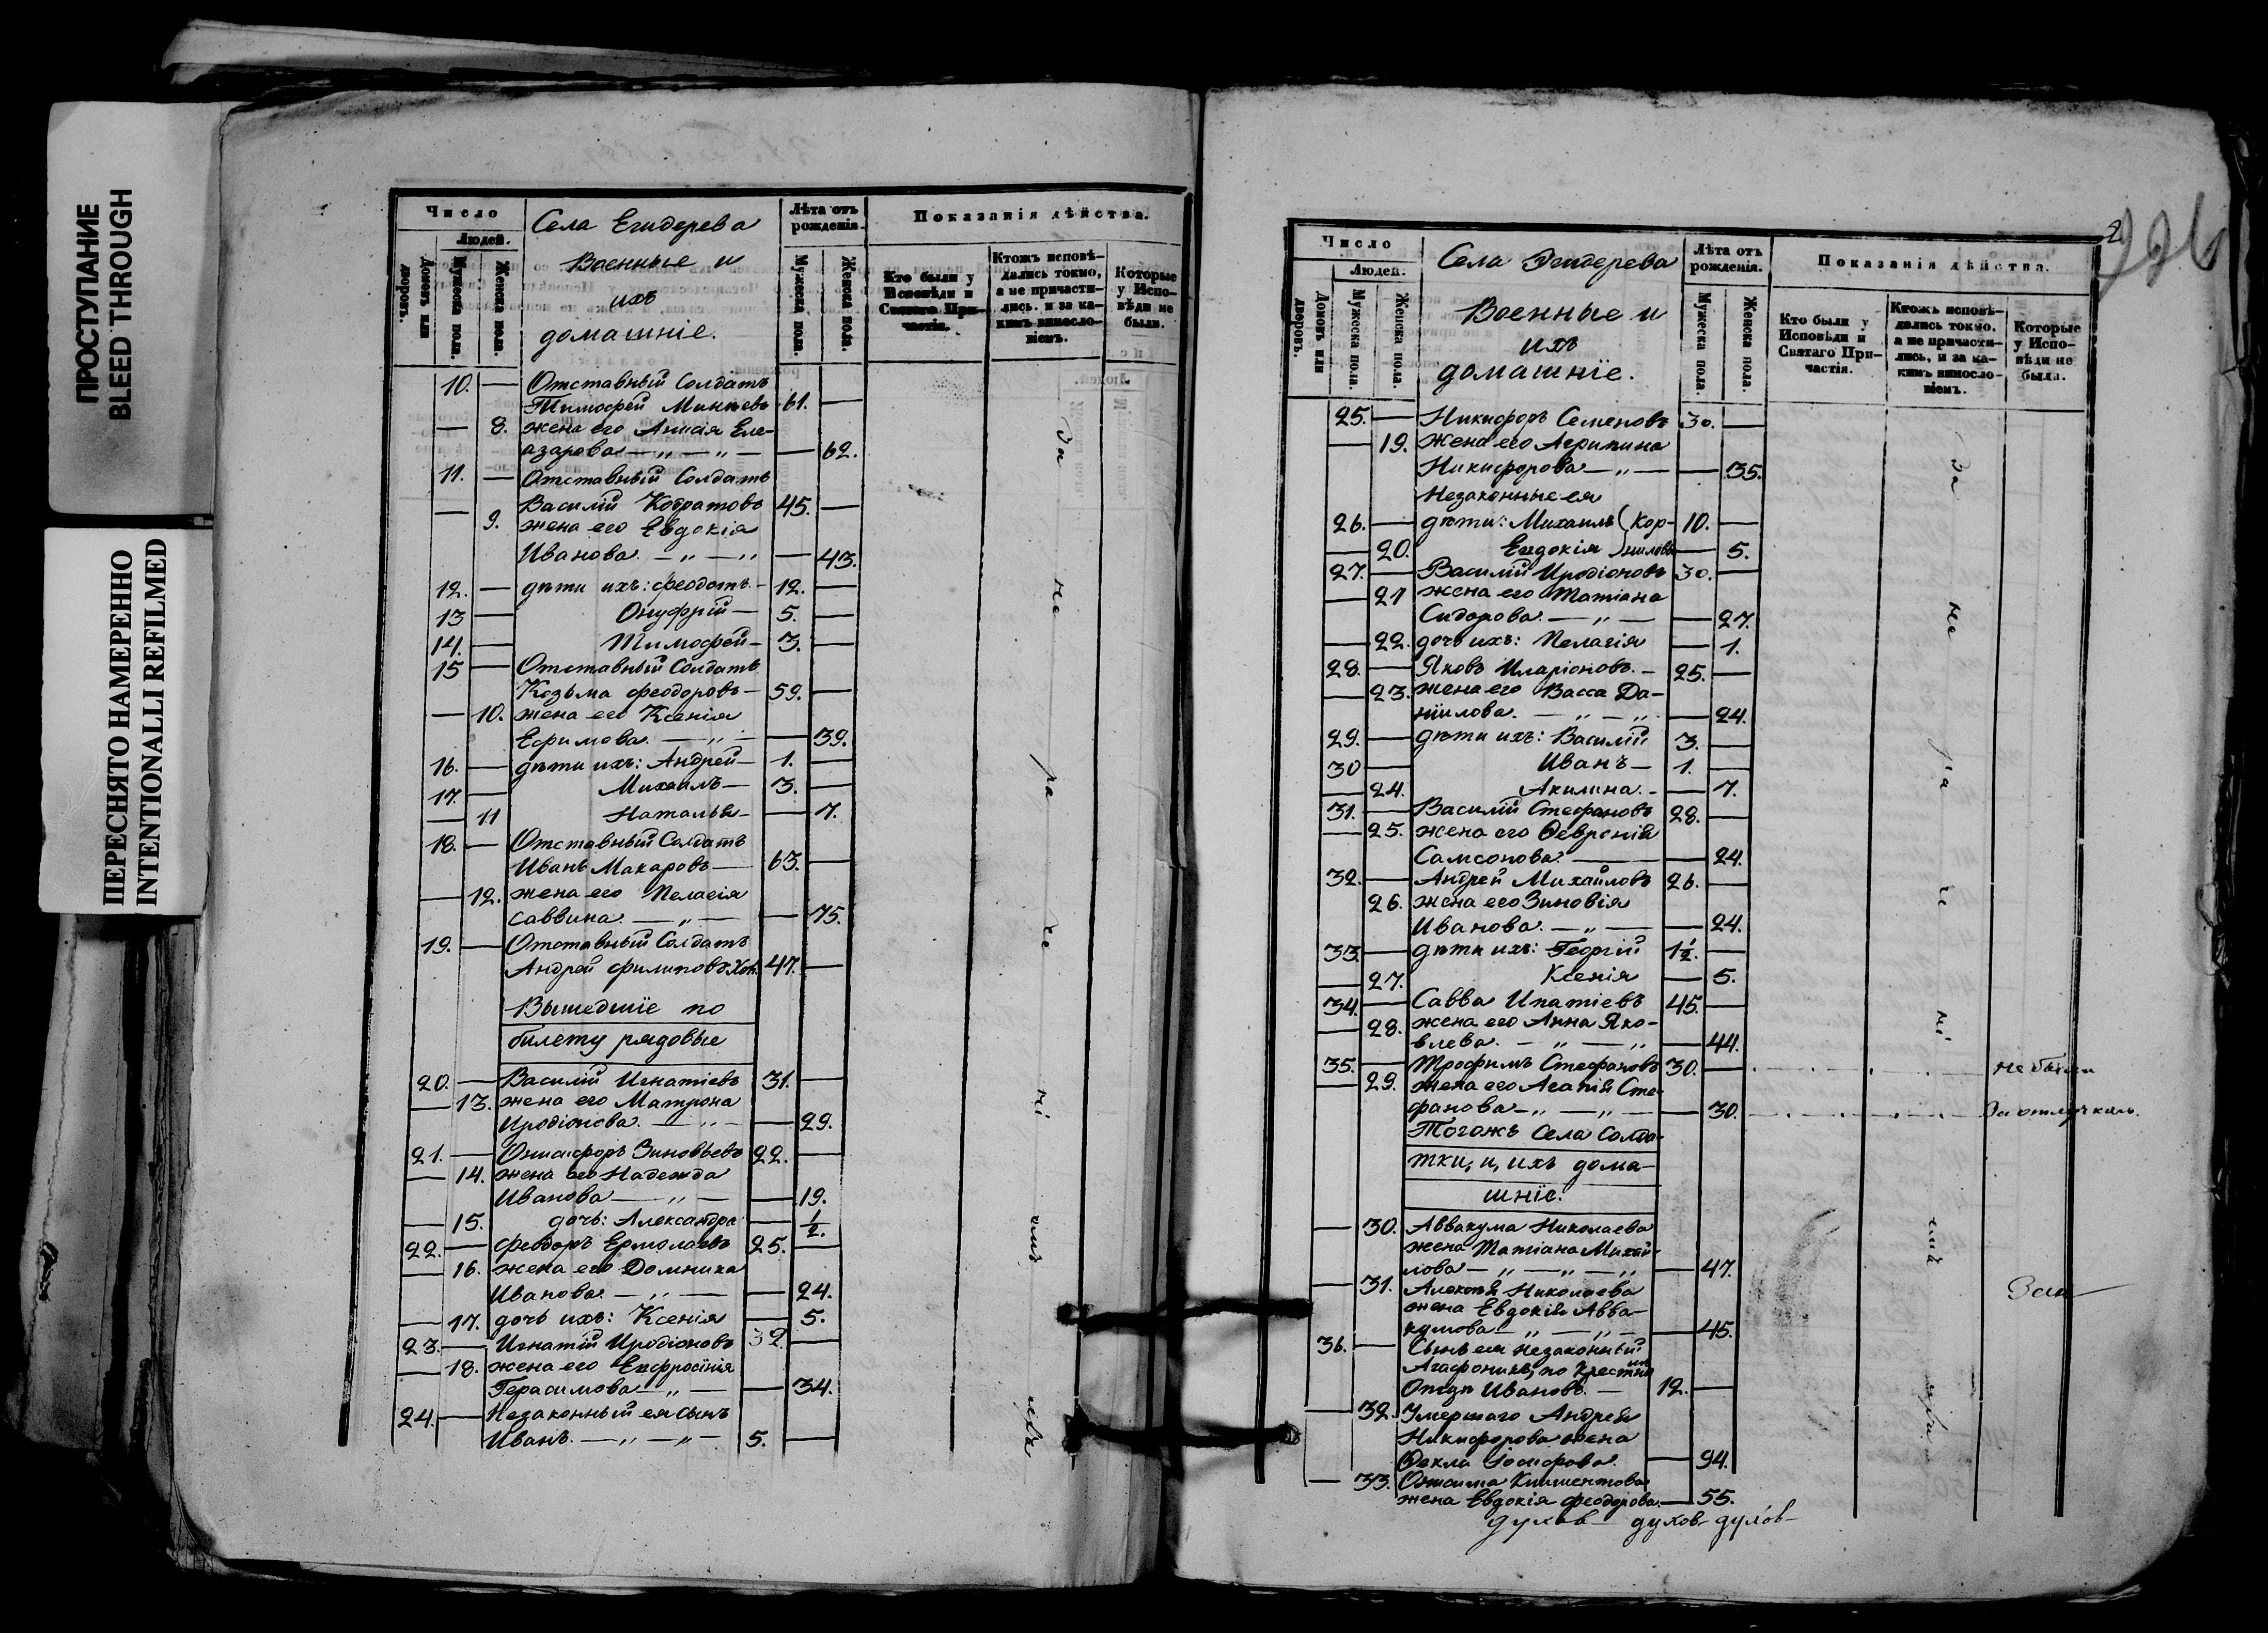 ПРОСТУПАНИЕ
BLEED THROUGH
ПЕРЕСНЯТО НАМЕРЕННО
INTENTIONALLI REFILMED
Число
Людей.
Домовъ или дворовъ.
Мужеска пола.
Женска пола.
Села Егидерева
Военные и
ихъ
домашніе.
Лѣта отъ рожденія.
Мужеска пола.
Женска пола.
Показанія дѣйства.
Кто были у Исповѣди и Святаго Причастія.
Ктожъ исповѣдались токмо, а не причастились, и за какимъ винословіемъ.
Которые у Исповѣди не были.
10. — Отставный Солдатъ
Тимофей Минѣевъ 61. —
— 8. жена его Анисія Еле-
азарова — „ — „ — — 62.
11. — Отставный Солдатъ
Василій 45. —
— 9. жена его Евдокія
Иванова. — „ — „ — 43.
12. — дѣти ихъ: Феодотъ. — 12. —
13 — Онуфрій — 5. —
14. — Тимофей — 3. —
15 — Отставный Солдатъ
Козьма Феодоровъ — 59. —
— 10. жена его Ксенія
Ефимова. — „ — — 39.
16. — дѣти ихъ: Андрей — 1. —
17. — Михаилъ — 3. —
— 11 Наталья — — 7.
18. — Отставный Солдатъ
Иванъ Макаровъ — 63. —
— 12. жена его Пелагія
Саввина. — „ — — 75.
19. — Отставный Солдатъ
Андрей Филиповъ 47. —
Вышедшіе по
билету рядовые
20. — Василій Игнатіевъ 31. —
— 13. жена его Матрона
Иродіонова. — „ — — 29.
21. — Зиновьевъ 22. —
— 14. жена его Надежда
Иванова — „ — — 19.
— 15. дочь: Александра — 1/2.
22. — Феодоръ Ермолаевъ 25. —
— 16. жена его Домника
Иванова. — „ — — 24.
— 17. дочь ихъ: Ксенія — 5.
23. — Игнатій Иродіоновъ 32. —
— 18. жена его Евфросинія
Герасимова — „ — — 34.
24. — Незаконный ея сынъ
Иванъ. — „ — „ — 5. —
За не ра че ні
Число
Людей.
Домовъ или дворовъ.
Мужеска пола.
Женска пола.
Села Эгидерева
Военные и
ихъ
домашніе.
Лѣта отъ рожденія.
Мужеска пола
Женска пола.
Показанія дѣйства.
Кто были у Исповѣди и Святаго Причастія.
Ктожъ исповѣдались токмо. а не причастились, и за какимъ винословіемъ.
Которые у Исповѣди не были.
25. — Никифоръ Семеновъ 30. —
— 19. жена его Агрипина
Никифорова — „ — — 35.
Незаконные ея
26. — дѣти: Михаилъ (Кор- 10. —
— 20. Евдокія )ниловы — 5.
27. — Василій Иродіоновъ 30. —
— 21 жена его Татіана
Сидорова. — „ — — 27.
— 22. дочь ихъ: Пелагія — 1.
28. — Яковъ Иларіоновъ. — 25. —
— 23. жена его Васса Да-
ніилова. — „ — „ — 24.
29. — дѣти ихъ: Василій 3. —
30 — Иванъ — 1. —
— 24. Акилина. — — 7.
31. — Василій Стефановъ 28. —
— 25. жена его Февронія
Самсонова. — — 24.
32. — Андрей Михайловъ 26. —
26. жена его Зиновія
Иванова. — „ — — 24.
33. — дѣти ихъ: Георгій 1 1/2. —
— 27. Ксенія — 5.
34. — Савва Ипатіевъ 45. —
— 28. жена его Анна Яко-
влева. — „ — „ — 44.
35. — Трофимъ Стефановъ 30. — не были
— 29. жена его Агапія Сте-
фанова — „ — „ — 30. За отлучкою.
Тогожъ Села Солда-
тки, и, ихъ дома-
шніе.
— 30. Аввакума Николаева
жена Татіана Михай-
лова — „ — „ — „ — 47.
— 31. Алексѣя Николаева
жена Евдокія Авва-
кумова — „ — „ — 45.
36. — Сынъ ея незаконный
Агафоникъ, по крестно
Отцу Ивановъ. — 12. —
— 32. Умершаго Андрея
Никифорова жена
Фекла — 94.
— 33. Климентова
жена Евдокія Феодорова. — 55.
За не ра че ні
духов духов